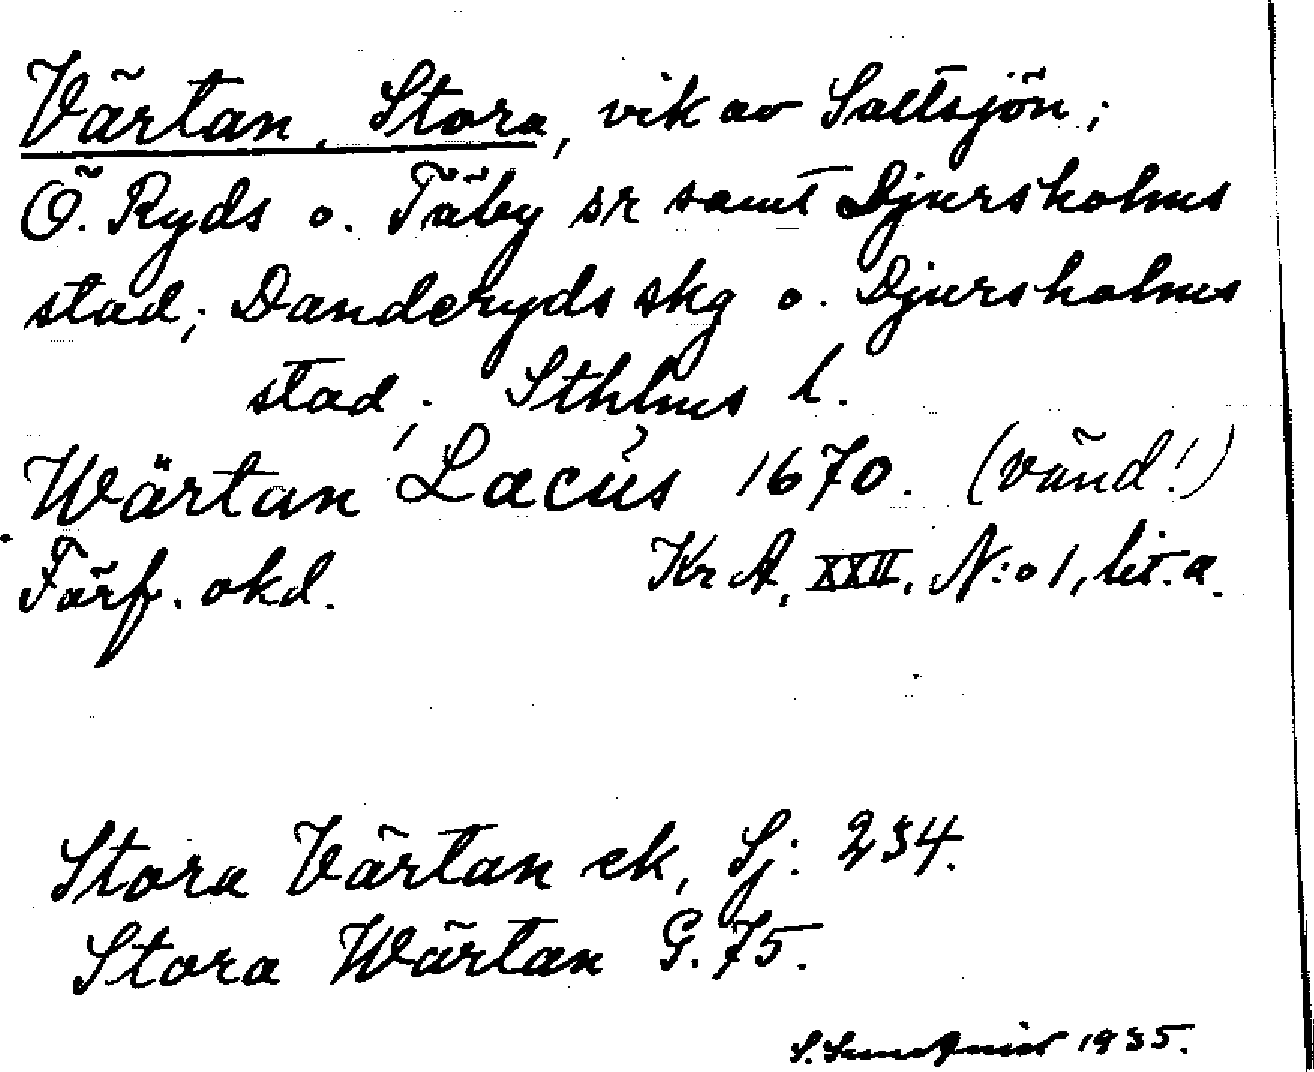 Värtan, Stora, vik av Saltsjön;
Ö. Ryds o. Täby sr samt Djursholms
stad; Danderyds skg o. Djursholms
stad; Sthlms l.
Wärtan Lacus 1670. (vänd!)
Förf. okd. Kr A, XXII, N:o 1, lit. a.
Stora Värtan ek, Sj: 234.
Stora Wärtan G. 75.
S. Sundqvist 1935.